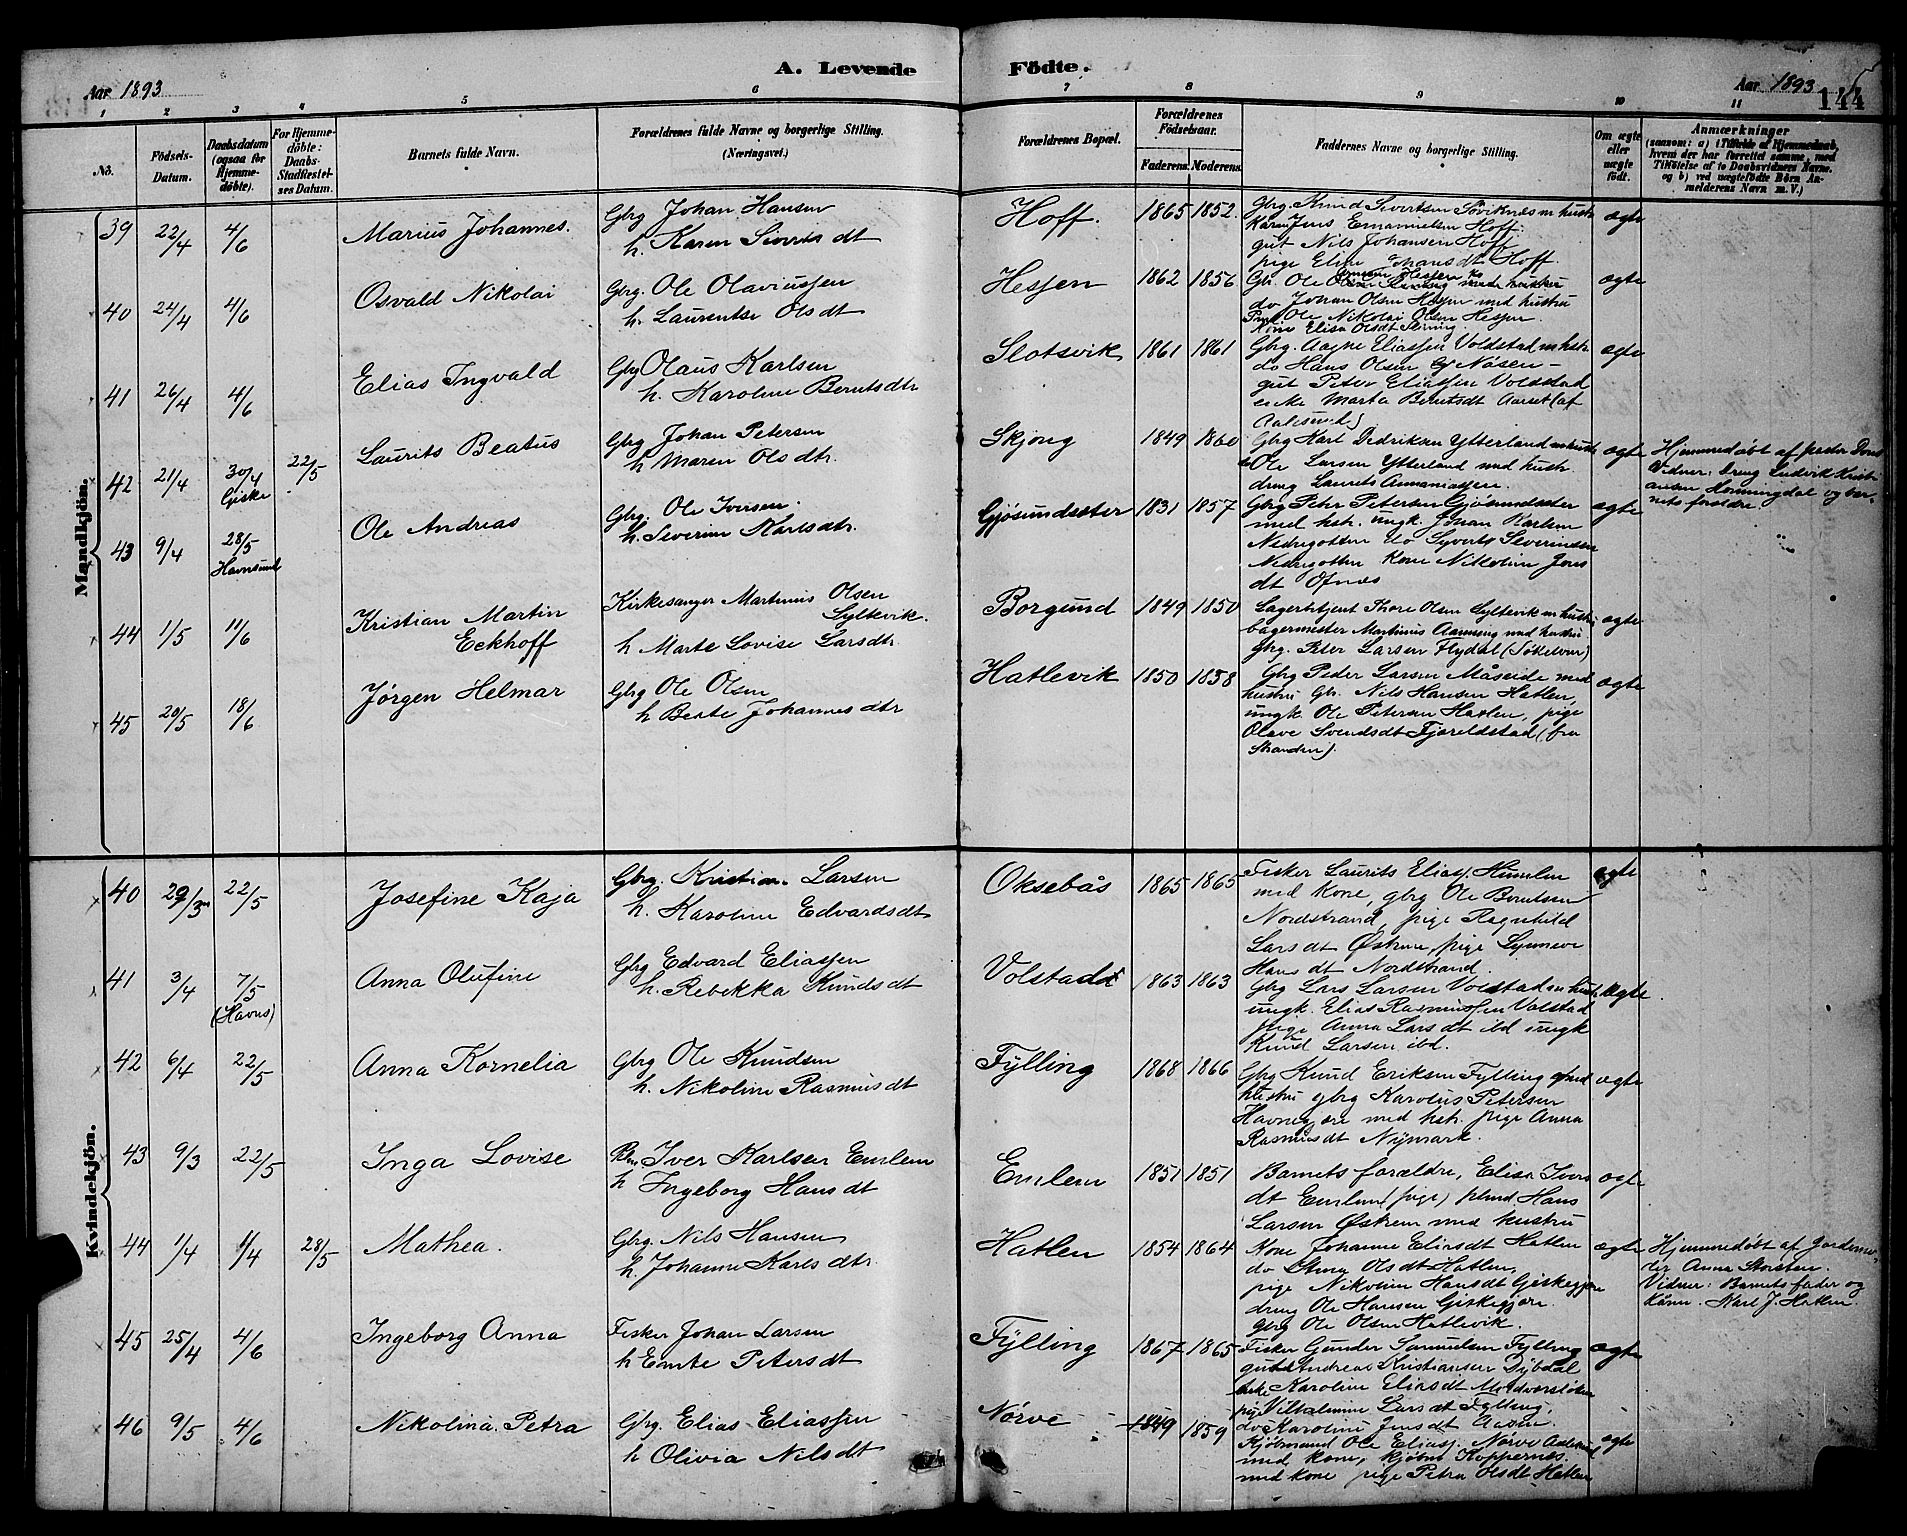 Aar 1893
A. Levende Födte.
Aar 1893
144
1 2 3 4 5 6 7 8 9 10 11
No.
Födsels-Datum.
Daabsdatum (ogsaa for Hjemme-döbte).
For Hjemme-döbte: Daabs-Stadfæstel-ses Datum.
Barnets fulde Navn.
Forældrenes fulde Navne og borgerlige Stilling. (Næringsvei.)
Forældrenes Bopæl.
Forældrenes Födselsaar.
Faderens. Moderens.
Faddernes Navne og borgerlige Stilling.
Om ægte eller uægte födt.
Anmærkninger
(saasom: a) i Tilfælde af Hjemmedaab, hvem der har forrettet samme, med Tilföielse af to Daabsvidners Navne. og b) ved uægtefödte Börn Anmelderens Navn m. V.)
Mandkjön.
39 22/4 4/6 Marius Johannes. Gbrg Johan Hansen
h. Karen Siverts dt
Hoff. 1865 1852. Gbrg. Knud Sivertsen Søviknæs m hustr
Karen Jens Emanuelsen Hoff.
gut Nils Johansen Hoff
pige Eline Hansdt Hoff.
ægte
40 24/4 4/6 Osvald Nikolai Gbrg. Ole Olaviussen
h. Laurentse Olsdt
Hessen 1862 1856 Gbr. Ole med hustru
do Johan Olsen Hessen med hustru
Ole Nikolai Olsen Hessen.
Kone Elisa Olsdt
ægte
41 26/4 4/6 Elias Ingvald Gbrg Olaus Karlsen
h. Karoline Berntsdtr
Slotsvik 1861 1861 Gbrg. Aagne Eliassen Voldstad m hstr
do Hans Olsen Nøsen –
gut Peter Eliassen Voldstad
enke Marta Berntsdt Aarset (af
Aalesund)
ægte
42 21/4 30/4 Giske 22/5 Laurits Beatus Gbrg Johan Petersen
h Maren Olsdtr.
Skjong 1849 1860 Gbrg Karl Dedriksen Ytterland m hustr
do Ole Larsen Ytterland med hustr
dreng Laurits Annaniassen.
ægte Hjemmedøbt af
Vidner: dreng Ludvik Kristi
ansen Horningdal og bar
nets forældre.
43 9/4 28/5 Havnsund Ole Andreas Gbrg. Ole Iversen
h. Severine Karlsdtr.
Gjøsundsæter 1831 1857 Gbrg Petr Petersen Gjøsundsæter
med hstr. ungk. Johan Karlsen
Nedregotten do Syvert Severindsen
Nedregotten Kone Nikoline Jons
dt Ofnæs
ægte
44 1/5 11/6 Kristian Martin
Eckhoff Kirkesanger Martinus Olsen
Syltevik.
h Marte Lovise Larsdtr.
Borgund 1849 1850 Lagerbetjent Thore Olsen Syltevik m hustr
bagermester Martinus Aamseng med hustru
gbrg. Peter Larsen Flydal (Søkelven)
ægte
45 20/5 18/6 Jørgen Helmar Gbrg Ole Olsen
h Berte Johannesdtr
Hatlevik 1850 1858 Gbrg Peder Larsen Måseide med
hustru Gbr. Nils Hansen Hatlen,
ungk. Ole Petersen Hatlen, pige
Olave Svendsdt Fjøreldstad (fra
Stranden).
ægte
Kvindekjön.
40 29/3 22/5 Josefine Kaja Gbrg. Kristian Larsen
h. Karoline Edvardsdt
Oksebås 1865 1865 Fisker Laurits Eliass. Humlen
med Kone, gbrg Ole Berntsen
Nordstrand, pige Ragnhild
Larsdt Østrem, pige Synneve
Hansdt Nordstrand.
ægte
41 3/4 7/5 (Havns) Anna Olufine Gbrg Edvard Eliassen
h. Rebekka Knudsdt
Volstad 1863 1863 Gbrg Lars Larsen Volstad m hustr
ungk. Elias Rasmussen Volstad
pige Anna Larsdt ibd ungk
Knud Larsen ibd.
ægte.
42 6/4 22/5 Anna Kornelia Gbrg Ole Knudsen
h. Nikoline Rasmusdt
Fylling 1868 1866 Gbrg Knud Eriksen Fylling med
hustru gbrg Karolus Petersen
Havnegjøre med hstr. pige Anna
Rasmusdt Nymark.
ægte
43 9/3 22/5 Inga Lovise Iver Karlsen Emlem
h Ingeborg Hansdt
Emlem 1851 1851 Barnets forældre, Elisa Ivers
dt Emlem (pige) plmd Hans
Larsen Østrem med hustru
ægte
44 1/4 1/4 28/5 Mathea. Gbrg. Nils Hansen
h. Johanne Karlsdtr.
Hatlen 1854 1864 Kone Johanne Eliasdt Hatlen
do Stina Olsdt Hatlen,
pige Nikoline Hansdt Giskegjøre
dreng Ole Hansen Giskegjøre.
gbrg Ole Olsen Hatlevik.
ægte Hjemmedøbt af Jordemo
der Anna Storsten.
Vidner: Barnets fader og
Karl J. Hatlen.
45 25/4 4/6 Ingeborg Anna Fisker Johan Larsen
h Emte Petersdt
Fylling 1867 1865 Fisker Gunder Samuelsen Fylling
gut Andreas Kristiansen Dybdal
enke Karoline Eliasdt
pige Vilhelmine Larsdt Fylling,
do Karoline Jensdt
ægte
46 9/5 4/6 Nikolina Petra Gbrg. Elias Eliassen
h Olivia Nilsdt
Nørve 1849 1859 Kjøbmand Ole Eliass. Nørve Aalesund
med kone, kjøbm Koppernæs
med kone pige Petra Olsdt Hatlen
ægte